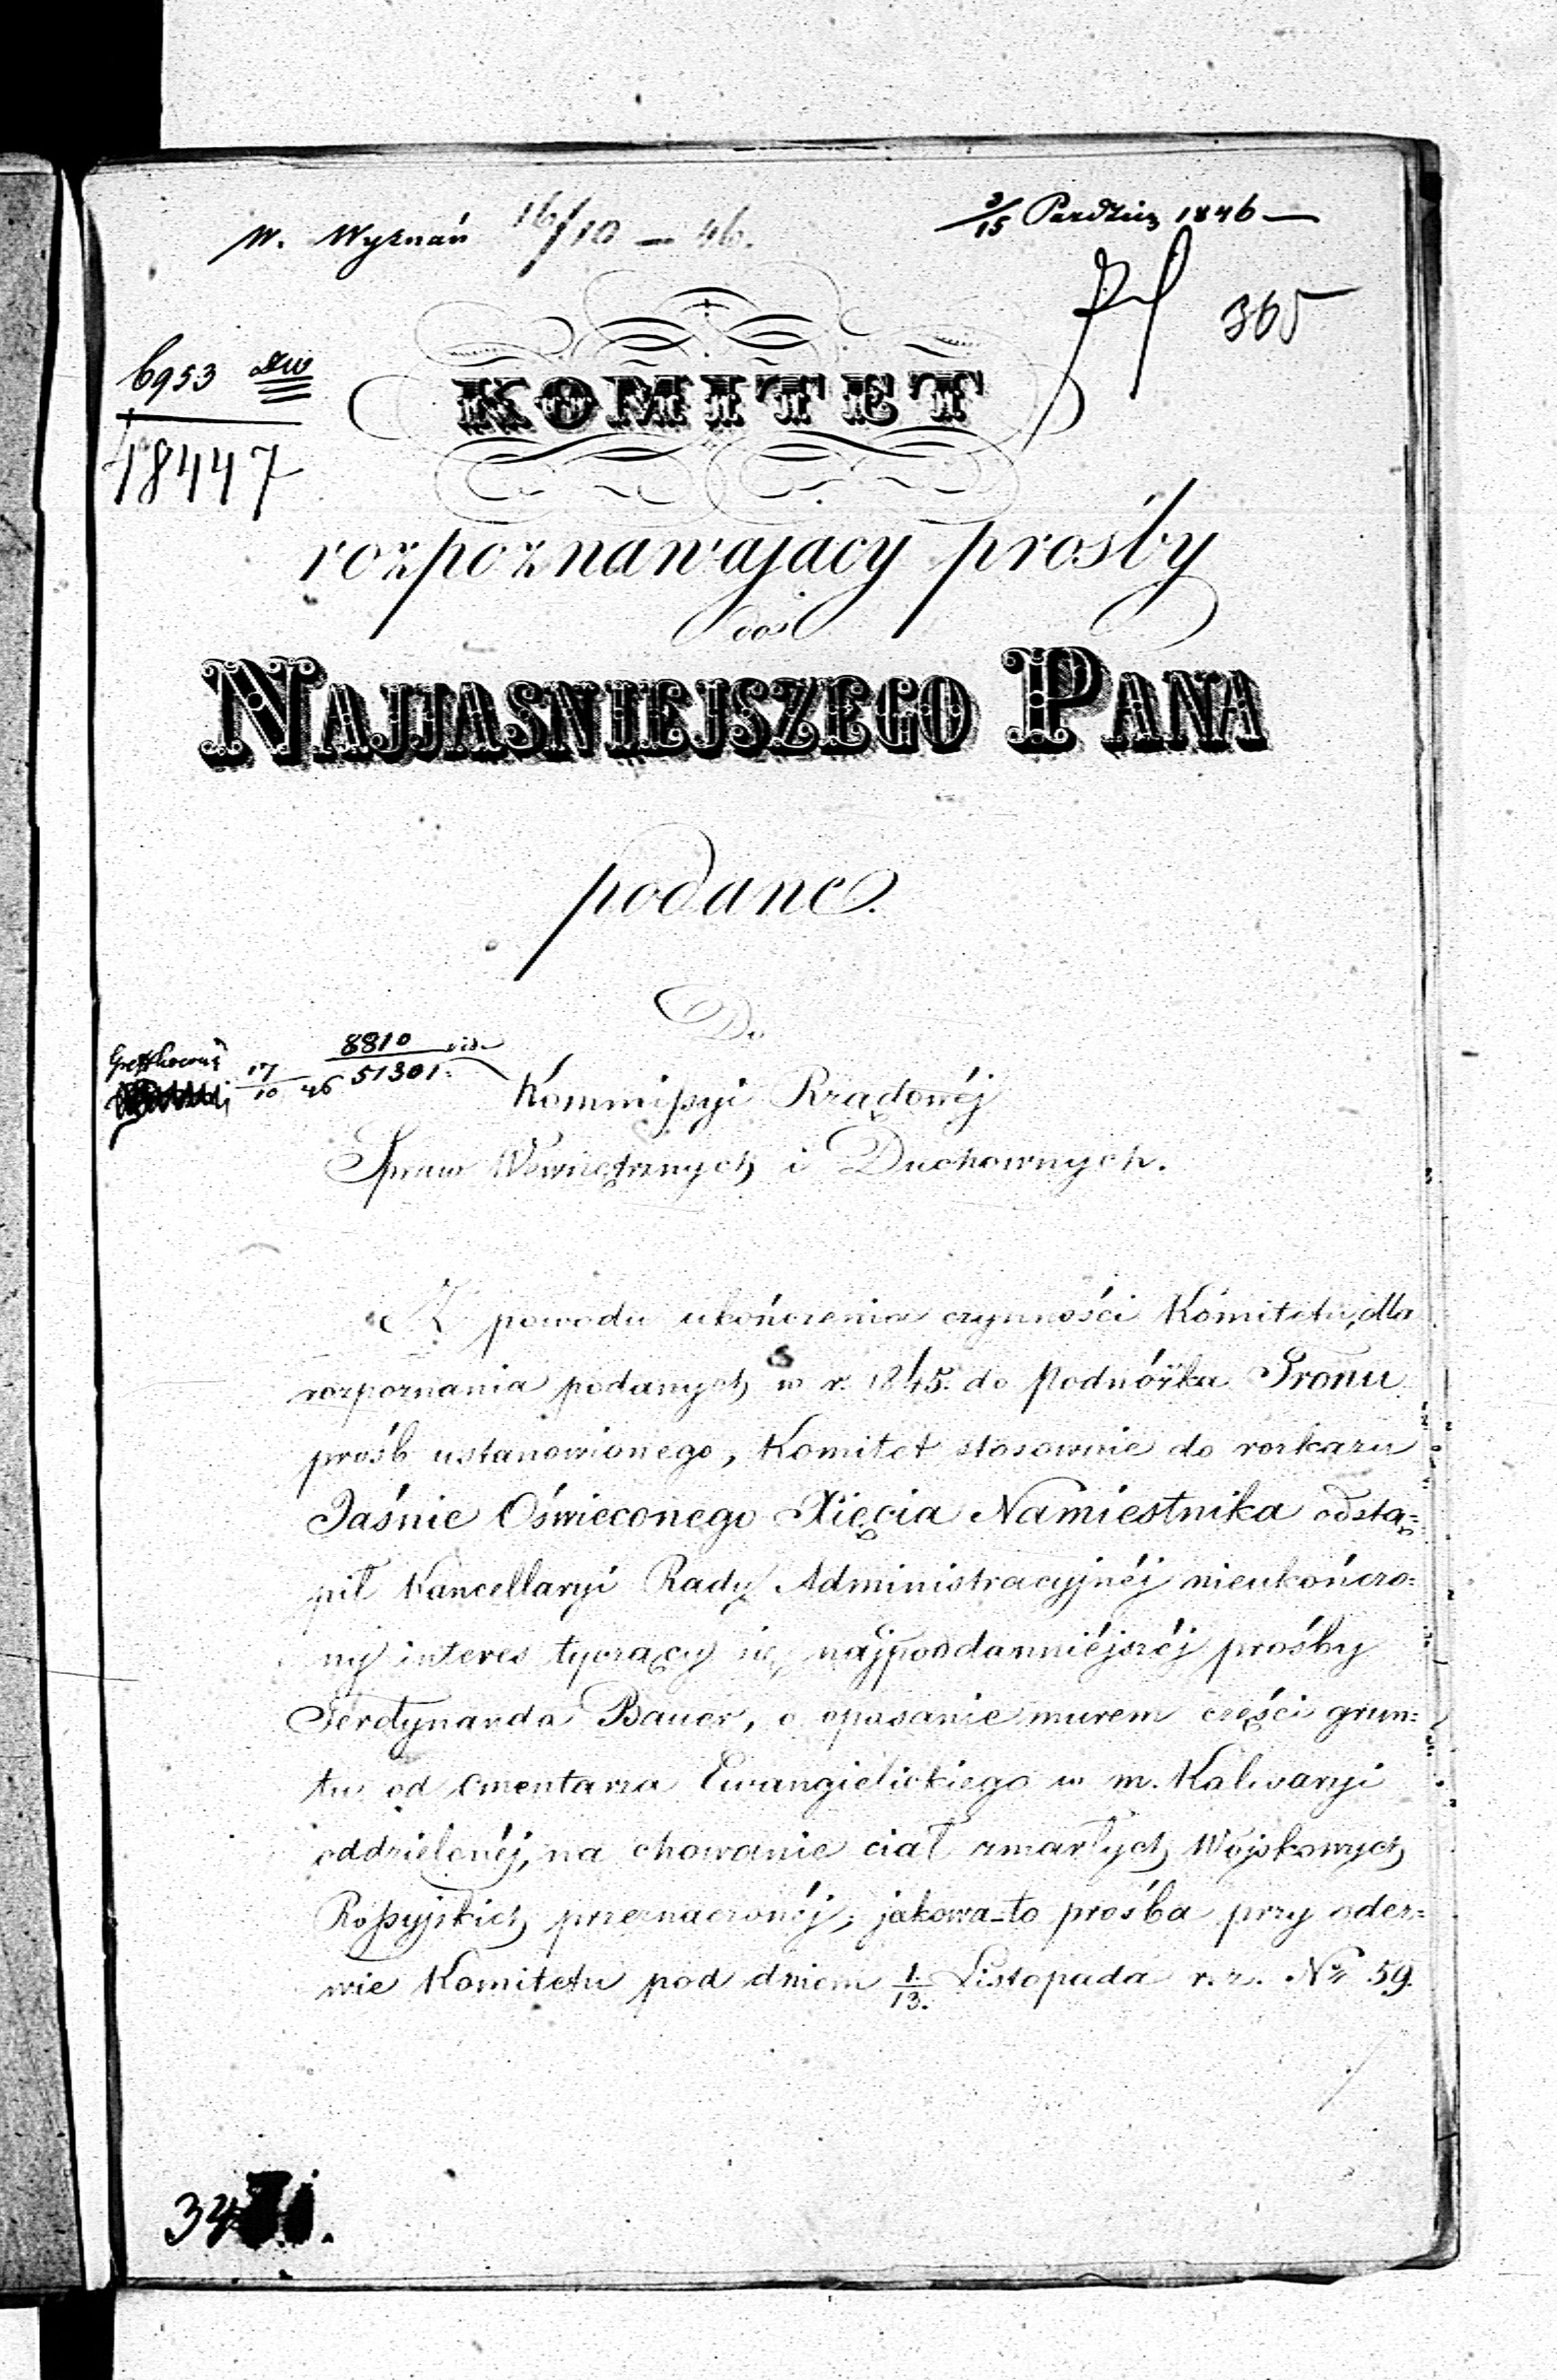 W. Wyznań 16/10 – 46.
3/15 Paździer 1846 —
365
6953
18447
KOMITET
rozpoznawający prośby
do
NAJJASNIEJSZEGO PANA
podane.
Do
8810
51301
17/10 46
Kommissyi Rządowéj
Spraw Wewnętrznych i Duchownych.
Z powodu ukończenia czynności Komitetu, dla
rozpoznania podanych w r. 1845. do Podnóżka Tronu
próśb ustanowionego, Komitet stosownie do rozkazu
Jaśnie Oświeconego Xięcia Namiestnika odstą=
pił Kancellaryi Rady Administracyjnéj nieukończo=
ny interes tyczący się najpoddanniéjszéj prośby
Ferdynanda Bauer, o opasanie murem części grun=
tu od Cmentarza Ewangielickiego w m. Kalwaryi
oddzielonéj, na chowanie ciał zmarłych Wojskowych
Rossyjskich przeznaczonéj; jakowa-to prośba przy odez=
wie Komitetu pod dniem 1./13. Listopada r. z. Nr 59.